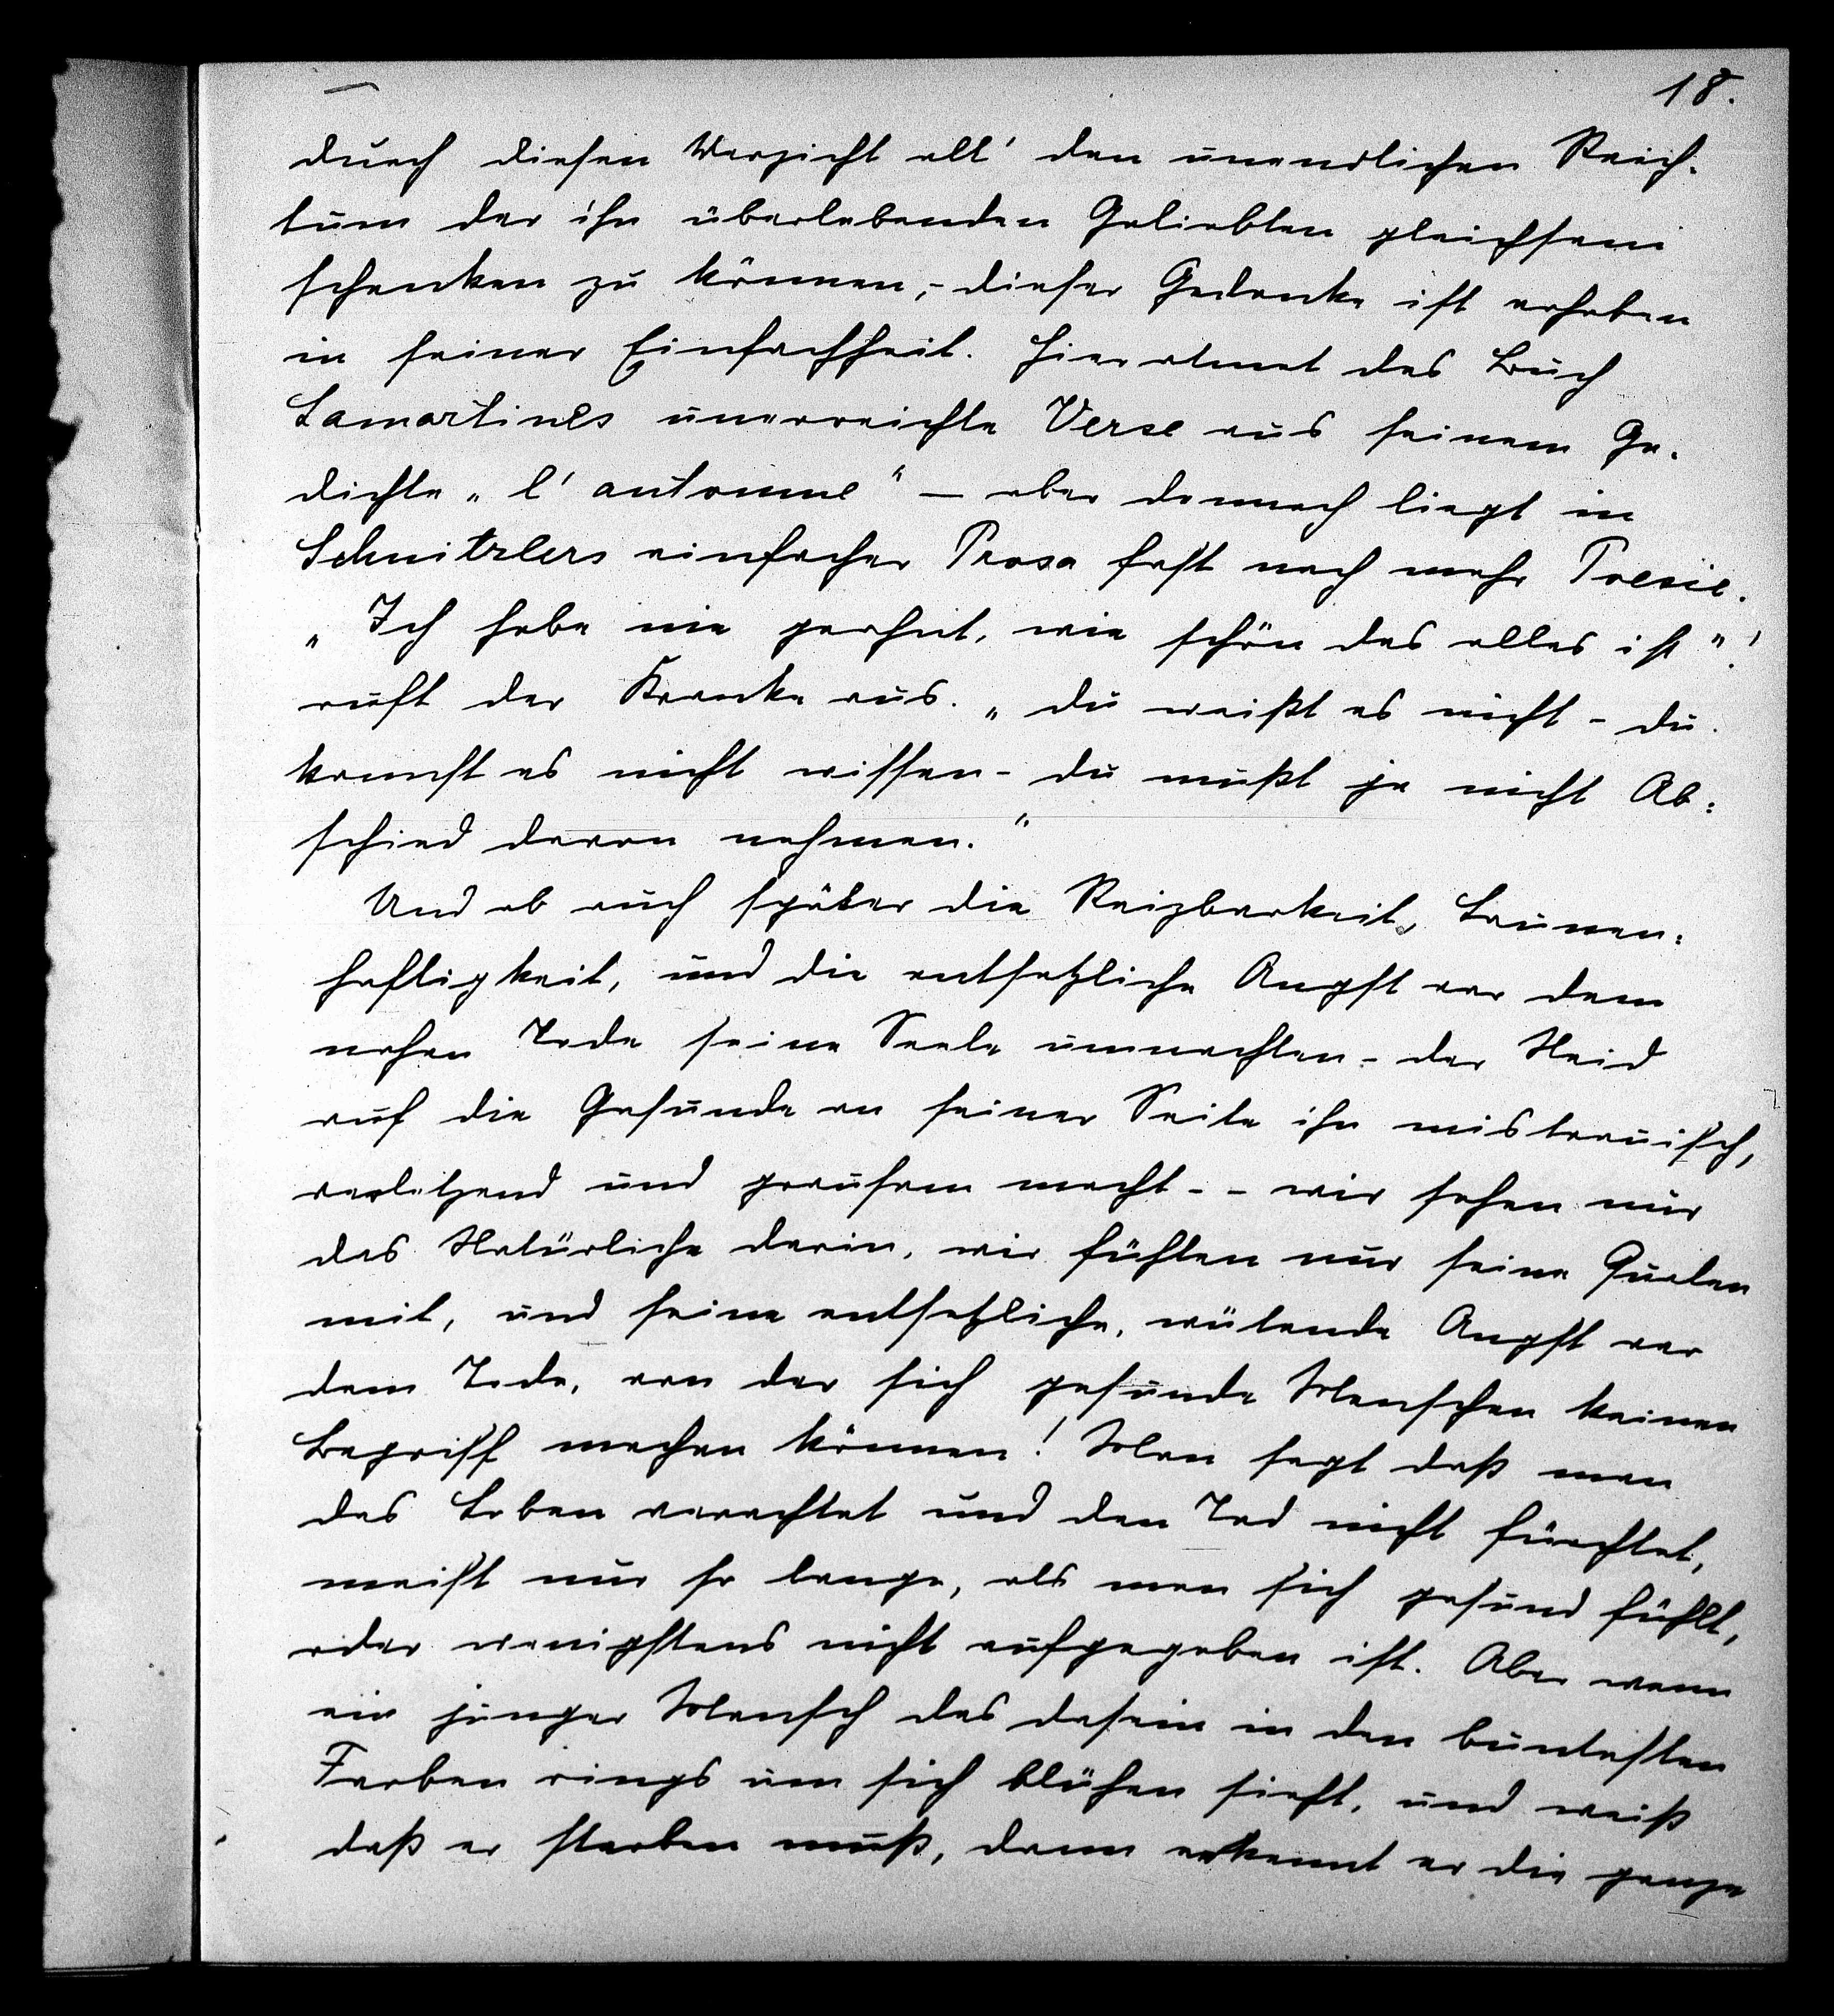 18.
durch diesen Verzicht all' den unendlichen Reich-
tum der ihn überlebenden Geliebten gleichsam
schenken zu können,- dieser Gedanke ist erhaben
in seiner Einfachheit. Hier atmet das Buch
Lamartines unerreichte Verse aus seinem Ge-
dichte „l'automne" — aber dennoch liegt in
Schnitzlers einfacher Prosa fast noch mehr Poesie.
„Ich habe nie geahnt, wie schön das alles ist"!
ruft der Kranke aus. „du weißt es nicht - du
kannst es nicht wissen - du mußt ja nicht Ab-
schied davon nehmen."
Und ob auch später die Reizbarkeit, Launen-
haftigkeit, und die entsetzliche Angst vor dem
nahen Tode seine Seele umnachten - der Neid
auf die Gesunde an seiner Seite ihn mistrauisch,
verletzend und grausam macht - - wir sehen nur
das Natürliche darin, wir fühlen nur seine Qualen
mit, und seine entsetzliche, wütende Angst vor
dem Tode, von der sich gesunde Menschen keinen
Begriff machen können! Man sagt daß man
das Leben verachtet und den Tod nicht fürchtet,
meist nur so lange, als man sich gesund fühlt,
oder wenigstens nicht aufgegeben ist. Aber wenn
ein junger Mensch das dasein in den buntesten
Farben rings um sich blühen sieht, und weiß
daß er sterben muß, dann erkennt er die ganze